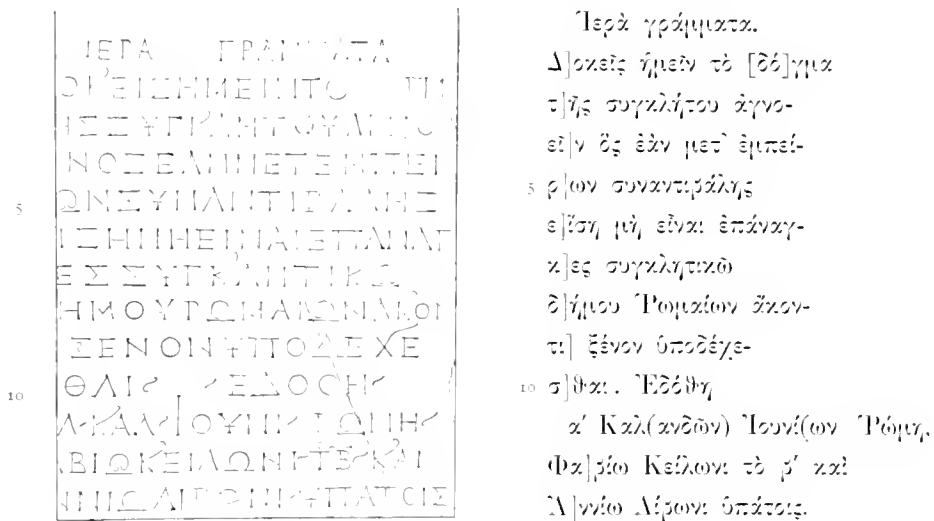 ΙΕΡΑ ΓΡΑΜΜΑΤΑ
ΟΚΕΙΣΗΜΕΙΝΤΟ ΓΜ
ΗΣΣΥΓΚΛΗΤΟΥΑΓΝΟ
ΝΟΣΕΑΝΜΕΤΕΜΠΕΙ
5 ΩΝΣΥΝΑΝΤΙΒΑΛΗΣ
ΙΣΗΜΗΕΙΝΑΙΕΠΑΝΑΓ
ΕΣΣΥΓΚΛΗΤΙΚΩ
ΗΜΟΥΡΩΜΑΙΩΝΑΚΟΝ
ΞΕΝΟΝΥΠΟΔΕΧΕ
10 ΘΑΙ ΕΔΟΘΗ
Α ΚΑΛ ΙΟΥΝΙ ΡΩΜΗ
ΒΙΩΚΕΙΛΩΝΙ ΤΕ ΚΑΙ
ΝΝΙΩ ΛΙΒΩΝΙ ΥΠΑΤΟΙΣ
Ἱερὰ γράμματα.
Δ]οκεῖς ἡμεῖν τὸ [δό]γμα
τ]ῆς συγκλήτου ἀγνο-
εῖ]ν ὃς ἐὰν μετ᾽ ἐμπεί-
5 ρ]ων συναντιβάλῃς
ε]ἴσῃ μὴ εἶναι ἐπάναγ-
κ]ες συγκλητικῷ
δ]ήμου Ῥωμαίων ἄκον-
τι] ξένον ὑποδέχε-
10 σ]θαι. Ἐδόθη
α´ Καλ(ανδῶν) Ἰουνί(ων Ῥώμῃ,
Φα]βίῳ Κείλωνι τὸ β´ καὶ
Ἀ]ννίῳ Λίβωνι ὑπάτοις.